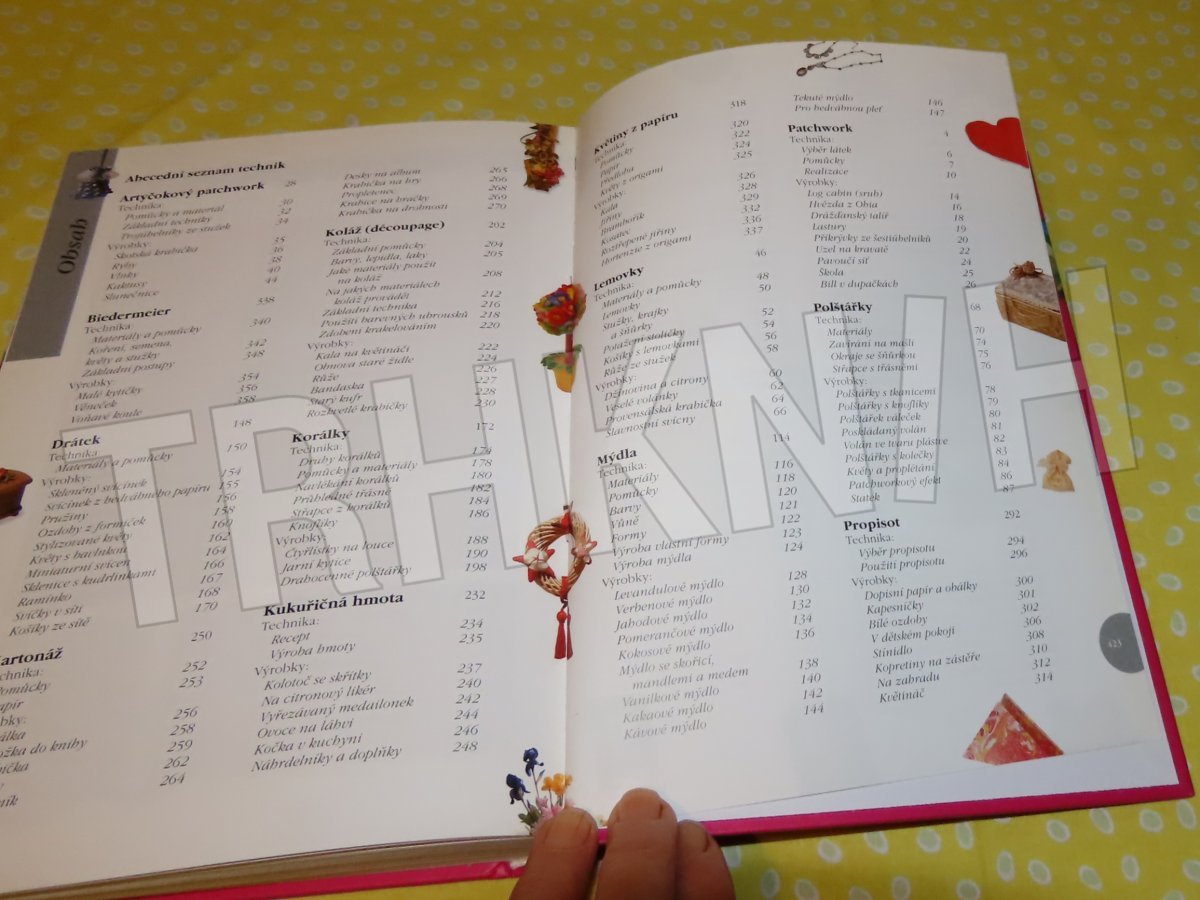 Obsah
Abecední seznam technik
Artyčokový patchwork 28
Technika:
Pomůcky a materiál 30
Základní techniky 32
Projúbelníky ze stužek 34
Výrobky:
Skotská krabička 35
Ryby 36
Vlnky 38
Kaktusy 40
Slunečnice 44
Biedermeier 338
Technika
Materiály a pomůcky 340
Koření, semena,
květy a stužky 342
Základní postupy 348
Výrobky:
Malé kytičky 354
Věneček 356
Voňavé koule 358
Drátek 148
Technika:
Materiály a pomůcky 150
Výrobky:
Skleněný svícínek 154
Svícínek z hedvábného papíru 155
Pružiny 156
Ozdoby z formiček 158
Stylizované květy 160
Květy s bavlnkou 162
Miniaturní svícen 164
Sklenice s kudrlinkami 166
Ramínko 167
Svíčky v síti 168
Košíky ze sítě 170
artonáž 250
chnika:
Pomůcky 252
apír 253
obky:
álka 256
ožka do knihy 258
bička 259
y 262
ník 264
Desky na album 265
Krabička na hry 266
Propletenec 268
Krabice na hračky 269
Krabička na drobnosti 270
Koláž (découpage) 202
Technika:
Základní pomůcky 204
Barvy, lepidla, laky 205
Jaké materiály použít
na koláž 208
Na jakých materiálech
koláž provádět 212
Základní technika 216
Použití barevných ubrousků 218
Zdobení krakelováním 220
Výrobky:
Kala na květináči 222
Obnova staré židle 224
Růže 226
Bandaska 227
Starý kufr 228
Rozkvetlé krabičky 230
Korálky 172
Technika:
Druhy korálků 174
Pomůcky a materiály 178
Navlékání korálků 180
Průhledné třásně 182
Střapce z korálků 184
Knoflíky 186
Výrobky:
Čtyřlístky na louce 188
Jarní kytice 190
Drahocenné polštářky 198
Kukuřičná hmota 232
Technika:
Recept 234
Výroba hmoty 235
Výrobky:
Kolotoč se skřítky 237
Na citronový likér 240
Vyřezávaný medailonek 242
Ovoce na láhvi 244
Kočka v kuchyni 246
Náhrdelníky a doplňky 248
Květiny z papíru 318
Technika:
Pomůcky 320
Papír 322
Předloha 324
Květy z origami 325
Výrobky:
Kala 326
Jiřiny 328
Brambořík 329
Kosatec 332
Rozstřepené jiřiny 336
Hortenzie z origami 337
Lemovky 46
Technika:
Materiály a pomůcky 48
Lemovky 50
Stužky, krajky
a šňůrky 52
Potažení stoličky 54
Košíks s lemovkami 56
Růže ze stužek 58
Výrobky:
Džínovina a citrony 60
Veselé volánky 62
Provensálská krabička 64
Slavnostní svícny 66
Mýdla 114
Technika:
Materiály 116
Pomůcky 118
Barvy 120
Vůně 121
Formy 122
Výroba vlastní formy 123
Výroba mýdla 124
Výrobky:
Levandulové mýdlo 128
Verbenové mýdlo 130
Jahodové mýdlo 132
Pomerančové mýdlo 134
Kokosové mýdlo 136
Mýdlo se skořicí,
mandlemi a medem 138
Vanilkové mýdlo 140
Kakaové mýdlo 142
Kávové mýdlo 144
Tekuté mýdlo 146
Pro hedvábnou pleť 147
Patchwork 4
Technika:
Výběr látek 6
Pomůcky 7
Realizace 10
Výrobky:
Log cabin (srub) 14
Hvězda z Ohia 16
Drážďanský talíř 18
Lastury 19
Přikrývky ze šestiúhelníků 20
Uzel na kravatě 22
Pavoučí síť 24
Škola 25
Bill v dupačkách 26
Polštářky 68
Technika:
Materiály 70
Zavírání na mašli 74
Okraje se šňůrkou 75
Střapce s třásněmi 76
Výrobky:
Polštářky s tkanicemi 78
Polštářky s knoflíky 79
Polštářek váleček 80
Poskládaný volán 81
Volán ve tvaru plástve 82
Polštářky s kolečky 83
Květy a proplétání 84
Patchworkový efekt 86
Statek 87
Propisot 292
Technika:
Výběr propisotu 294
Použití propisotu 296
Výrobky:
Dopisní papír a obálky 300
Kapesníčky 301
Bílé ozdoby 302
V dětském pokoji 306
Stínidlo 308
Kopretiny na zástěře 310
Na zahradu 312
Květináč 314
323
TRHKNIH